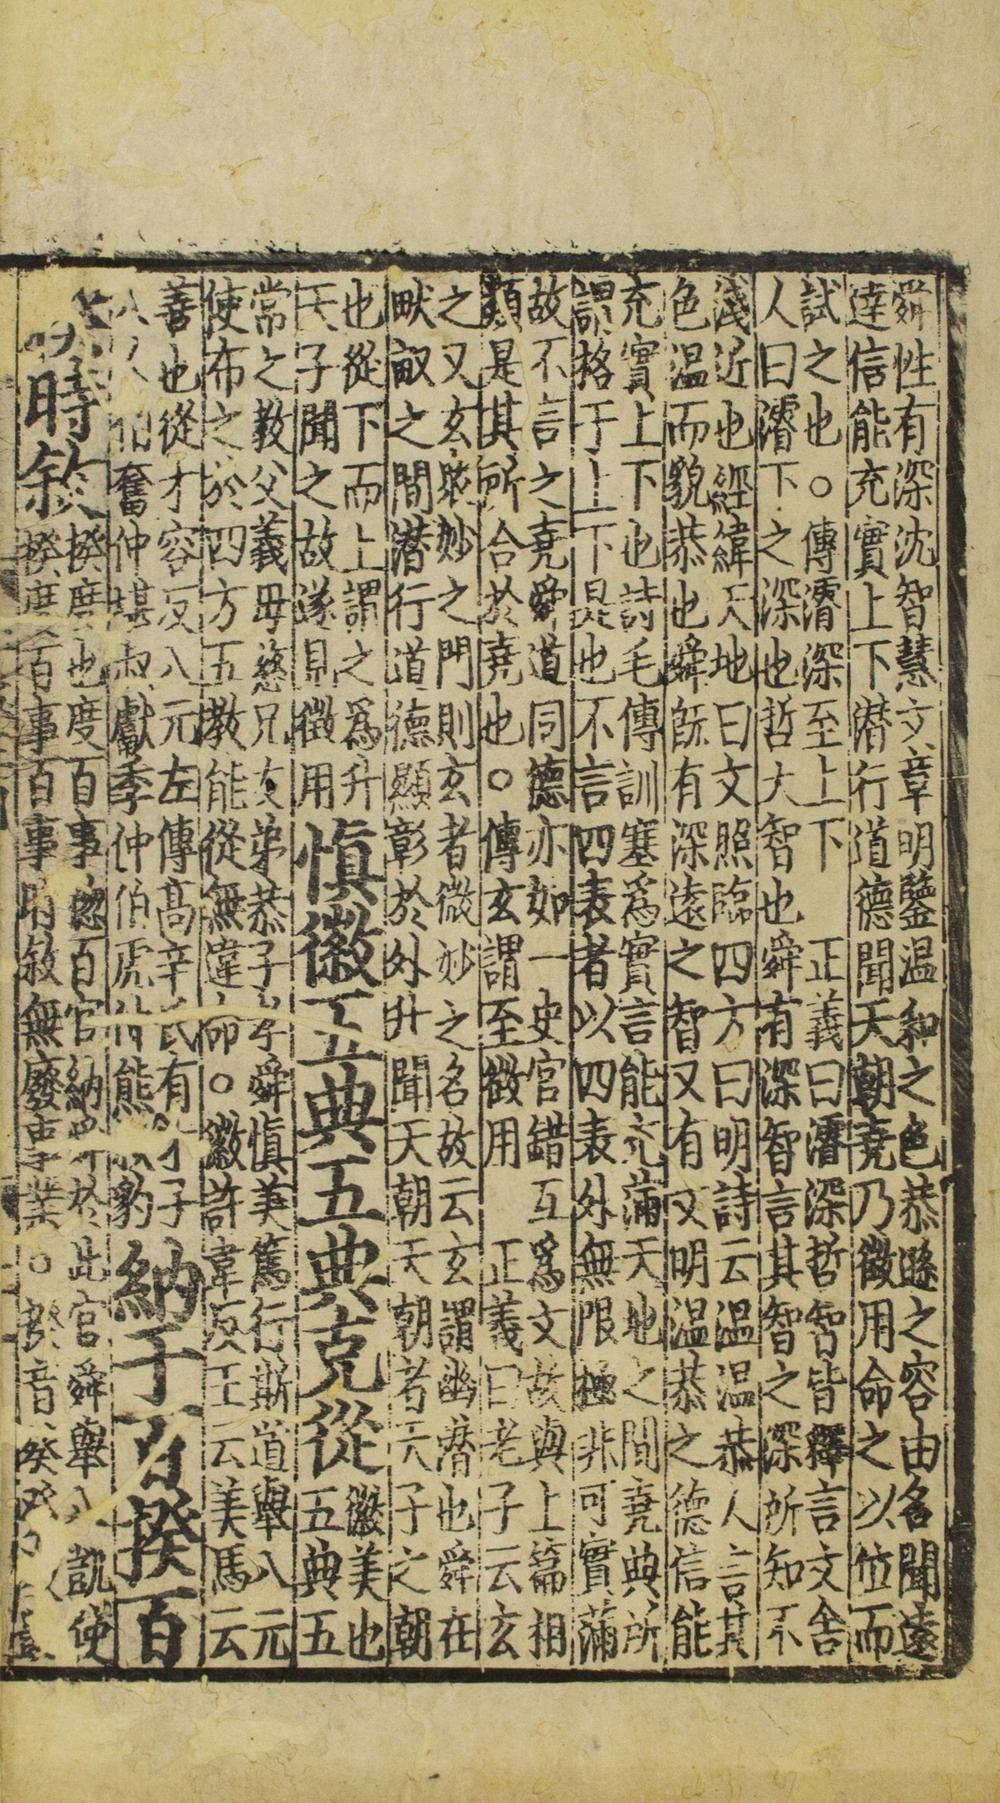 舜性有深沈智慧文章明鑒温和之色恭遜之容由名聞遠
達信能充實上下潜行道德聞天朝堯乃徵用命之以位而
試之也○傳濬深至上下 正義曰濬深哲智皆釋言文舎
人曰濬下之深也哲大智也舜有深智言其智之深所知不
淺近也經緯天地曰文照臨四方曰明詩云温温恭人言其
色温而貌恭也舜既有深遠之智又有文明温恭之德信能
充實上下也詩毛傳訓塞爲實言能充滿天地之間堯典所
謂格于上下是也不言四表者以四表外無限極非可實滿
故不言之堯舜道同德亦如一史官錯互爲文故與上篇相
類是其所合於堯也○傳玄謂至徵用 正義曰老子云玄
之又玄衆妙之門則玄者微妙之名故云玄謂幽潜也舜在
畎畝之間潜行道德顯彰於外升聞天朝天朝者天子之朝
也從下而上謂之爲升
天子聞之故遂見徵用
慎徽五典五典克從
徽美也
五典五
常之教父義母慈兄友弟恭子孝舜慎美篤行斯道舉八元
使布之於四方五教能從無違命○徽許韋反王云美馬云
善也從才容反八元左傳高辛氏有才子
八人伯奮仲堪叔獻季仲伯虎仲熊叔豹
納于百揆百
揆時敘
揆度也度百事惣百官納舜於此官舜舉八凱使
揆度百事百事時敘無廢事業○揆音葵癸